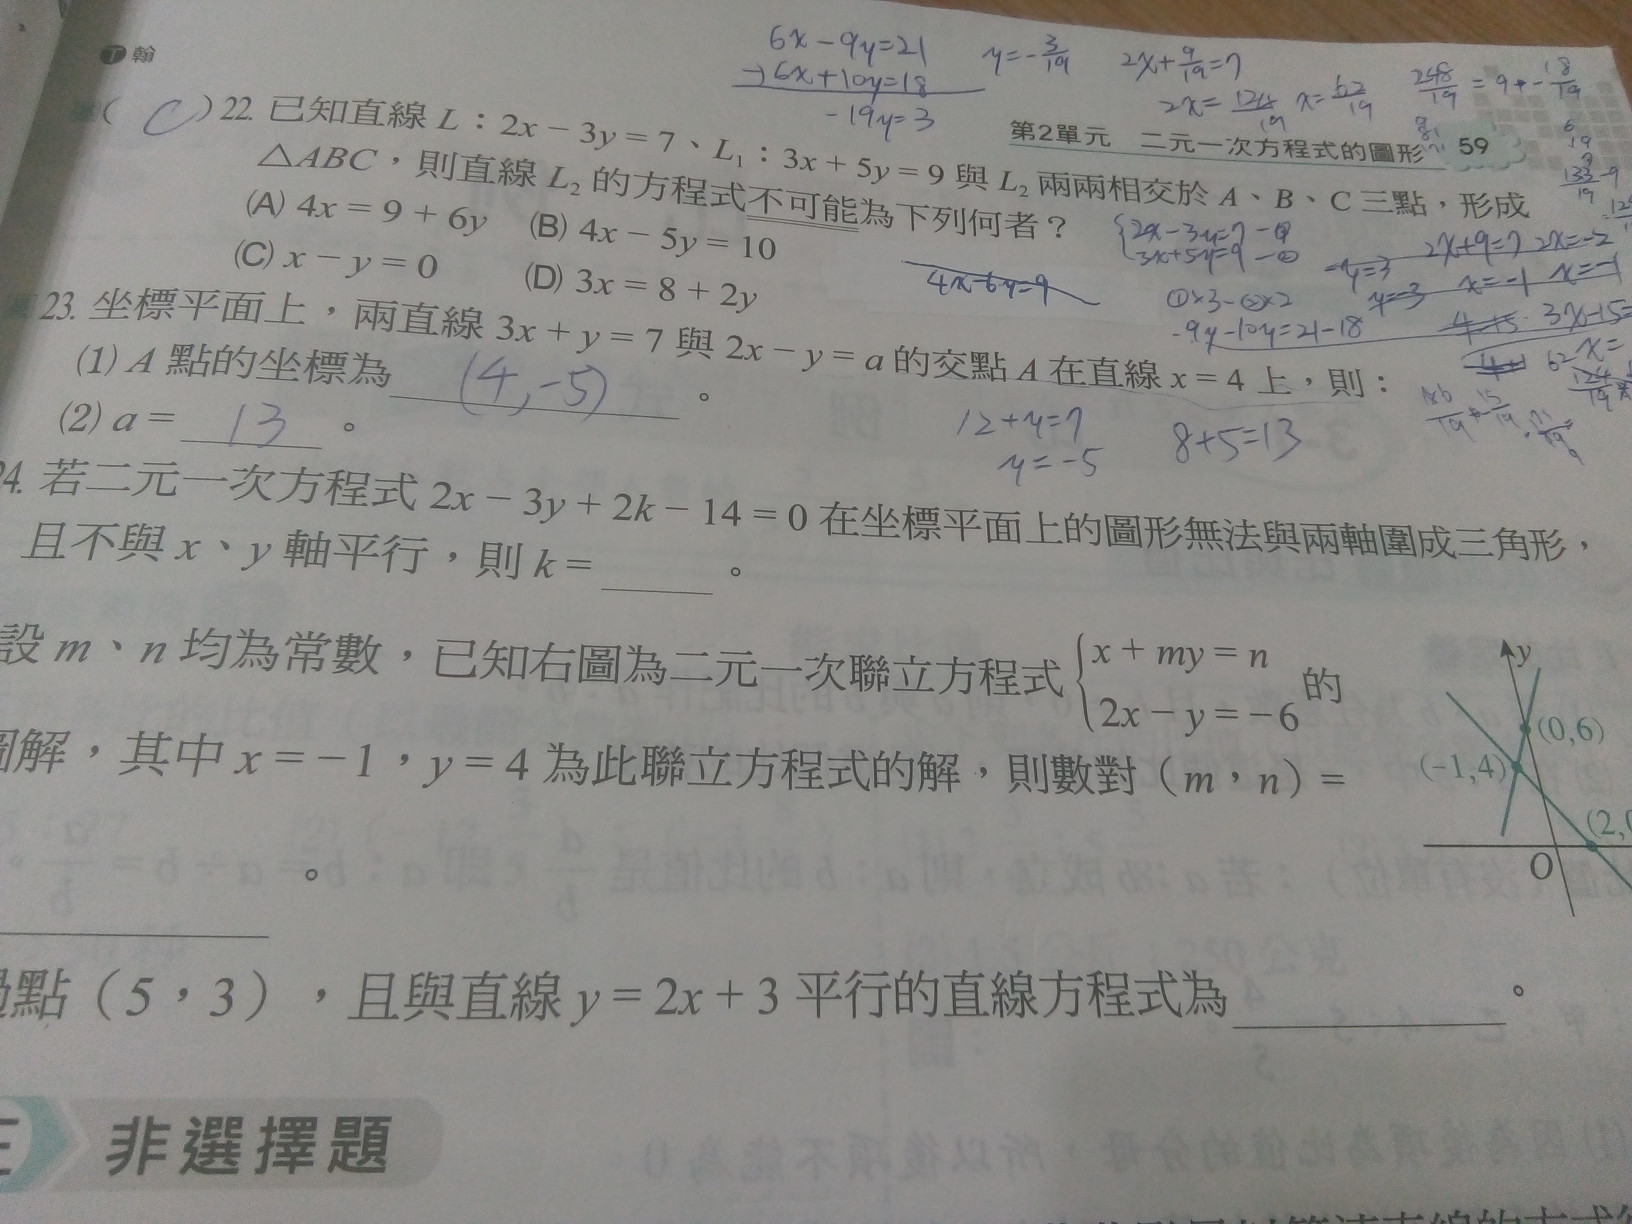 翰
6x-9y=21
-) 6x+10y=18
-19y=3
y=-3/19
2x+9/19=7
2x=124/19 x=62/19
248/19=9+-18/19
第2單元 二元一次方程式的圖形 59
( C )22. 已知直線 L：2x-3y=7、L₁：3x+5y=9 與 L₂ 兩兩相交於 A、B、C 三點，形成
△ABC，則直線 L₂ 的方程式不可能為下列何者？
(A) 4x=9+6y (B) 4x-5y=10
(C) x-y=0 (D) 3x=8+2y
4x-6y=9
{2x-3y=7-①
3x+5y=9-②
①×3-②×2
-9y-10y=21-18
-y=3
y=-3
2x+9=7 2x=-2
x=-1 x=-1
23. 坐標平面上，兩直線 3x+y=7 與 2x-y=a 的交點 A 在直線 x=4 上，則：
(1) A 點的坐標為 (4,-5) 。
(2) a= 13 。
12+y=7
y=-5
8+5=13
24. 若二元一次方程式 2x-3y+2k-14=0 在坐標平面上的圖形無法與兩軸圍成三角形，
且不與 x、y 軸平行，則 k=＿＿＿。
設 m、n 均為常數，已知右圖為二元一次聯立方程式 {x+my=n
2x-y=-6 的
圖解，其中 x=-1，y=4 為此聯立方程式的解，則數對（m，n）=
。
y
(0,6)
(-1,4)
(2,
O
過點（5，3），且與直線 y=2x+3 平行的直線方程式為＿＿＿＿＿＿。
非選擇題